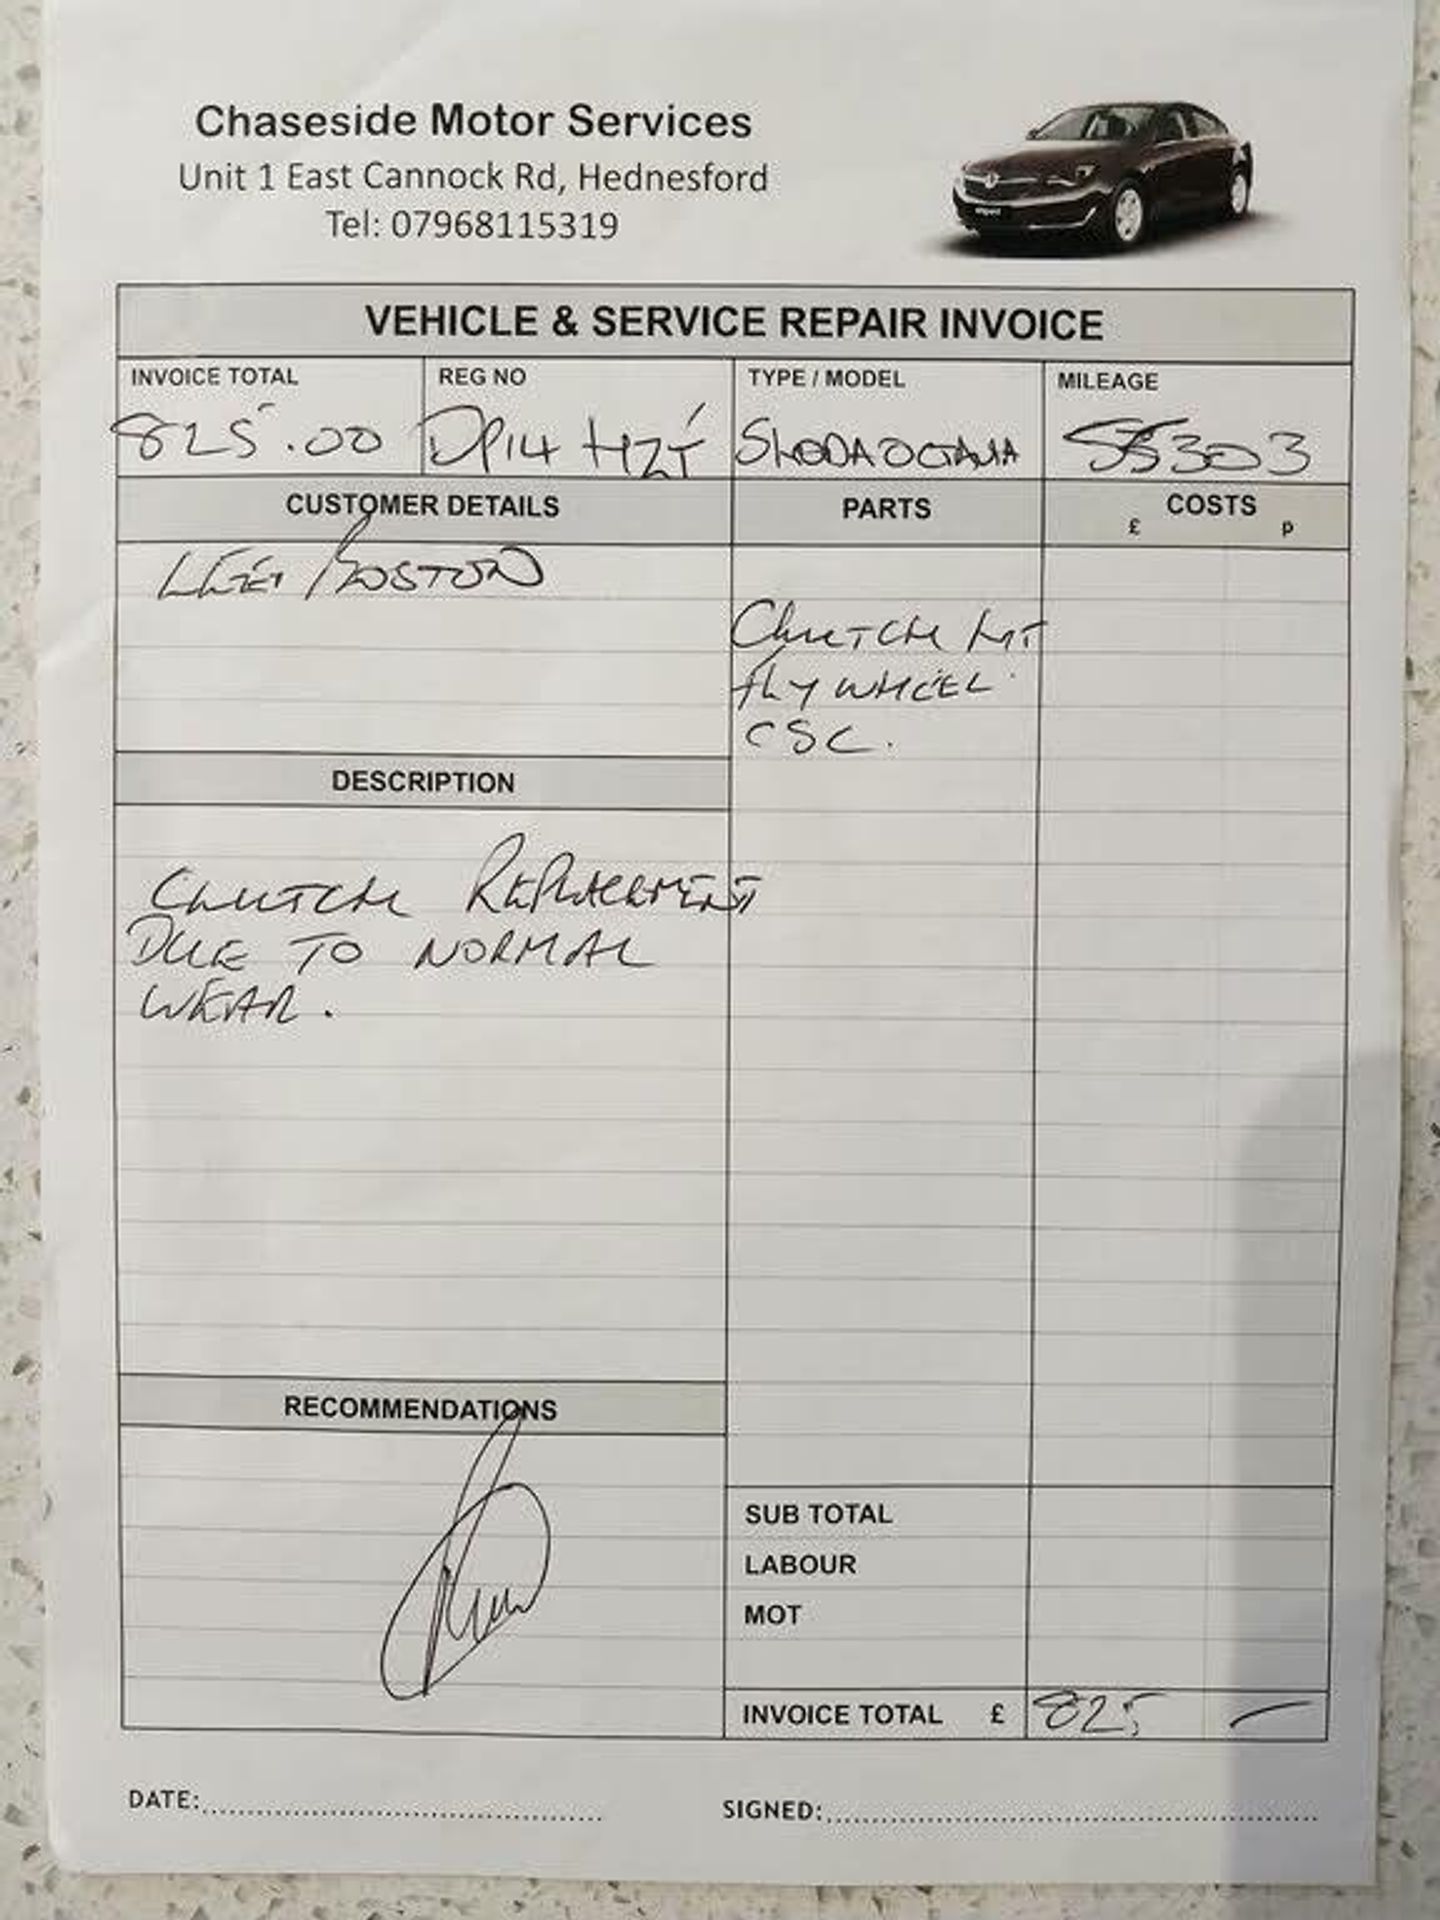 Chaseside Motor Services
Unit 1 East Cannock Rd, Hednesford
Tel: 07968115319
VEHICLE & SERVICE REPAIR INVOICE
INVOICE TOTAL REG NO TYPE / MODEL MILEAGE
825.00 DP14 HZT SKODA OCTAVIA 55303
CUSTOMER DETAILS PARTS COSTS
£ p
LEE BOSTON
CLUTCH KIT
FLYWHEEL
CSC.
DESCRIPTION
CLUTCH REPLACEMENT
DUE TO NORMAL
WEAR.
RECOMMENDATIONS
SUB TOTAL
LABOUR
MOT
INVOICE TOTAL £ 825 –
DATE:
SIGNED: